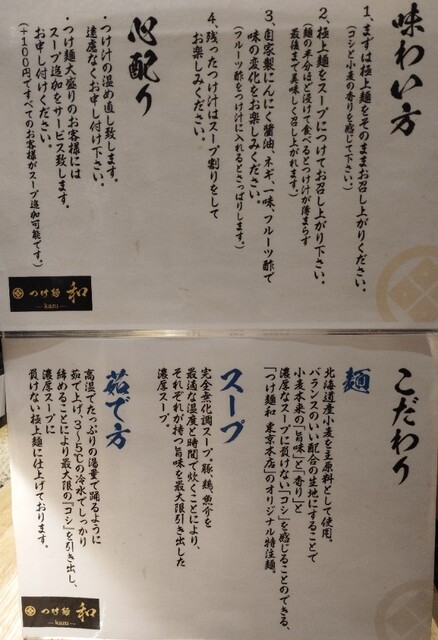 味わい方
1、まずは極上麺をそのままお召し上がりください。
(コシと小麦の香りを感じて下さい。)
2、極上麺をスープにつけてお召し上がり下さい。
(麺の半分ほど浸けて食べるとつけ汁が薄まらず
最後まで美味しく召し上がれます。)
3、自家製にんにく醤油、ネギ、一味、フルーツ酢で
味の変化をお楽しみください。
(フルーツ酢をつけ汁に入れるとさっぱりします。)
4、残ったつけ汁はスープ割りをして
お楽しみください。
心配り
・つけ汁の温め直し致します。
遠慮なくお申し付け下さい。
・つけ麺大盛りのお客様には
スープ追加をサービス致します。
お申し付けください。
(+100円ですべてのお客様がスープ追加可能です。)
つけ麺 和
─ kazu ─
こだわり
麺
北海道産小麦を主原料として使用。
バランスのいい配合の生地にすることで
小麦本来の「旨味」と「香り」と
濃厚なスープに負けない「コシ」を感じることのできる、
「つけ麺和 東京本店」のオリジナル特注麺。
スープ
完全無化調スープ。豚、鶏、魚介を
最適な温度と時間で炊くことにより、
それぞれが持つ旨味を最大限引き出した
濃厚スープ。
茹で方
高温でたっぷりの湯量で踊るように
茹で上げ、3〜5℃の冷水でしっかり
締めることにより最大限の「コシ」を引き出し、
濃厚スープに
負けない極上麺に仕上げております。
つけ麺 和
─ kazu ─